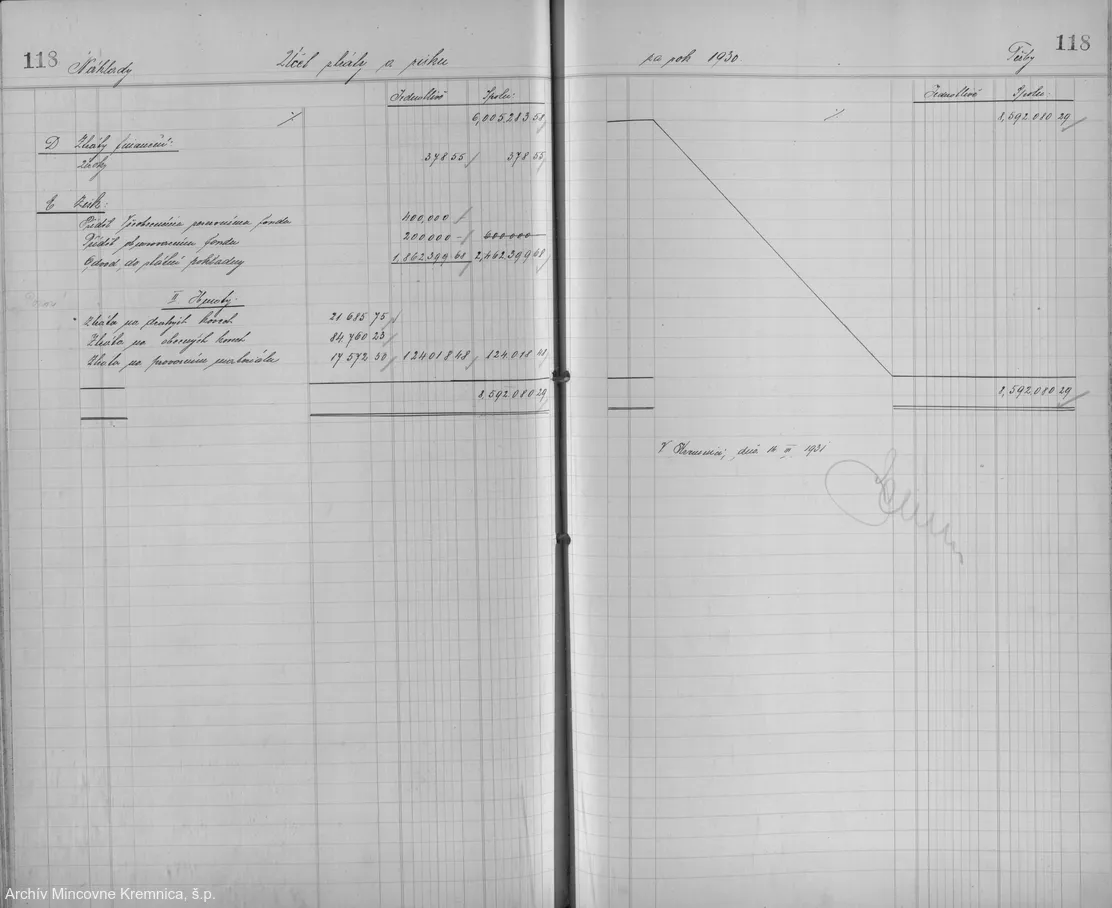 118 Náklady Účet ztráty a zisku za rok 1930. Tržby 118
Jednotlivě Spolu:
Jednotlivě Spolu:
·/. 6,005.283 58
·/. 8,592.080 29
D Ztráty finanční:
Úroky 378 55 378 55
E Zisk:
Příděl fondu 400,000 —
Příděl fondu 200.000 — 600.000 —
Odvod do státní pokladny 1,862.399 68 2,462.399 68
II. Hmoty.
Ztráta na drahých kovech 21 685 75
Ztráta na obecných kovech 84.760 23
Ztráta na provozním materiálu 17 572 50 124.018 48 124.018 48
8,592.080 29
8,592.080 29
V Kremnici, dne 16 VI 1931
Archív Mincovne Kremnica, š.p.